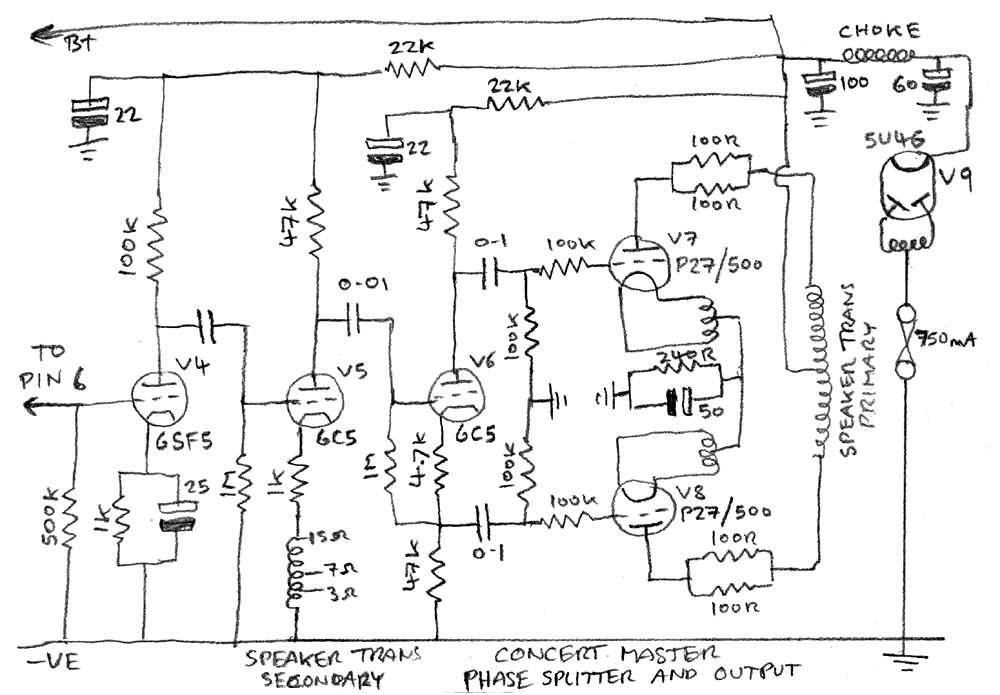 B+
22K
CHOKE
22K
22
100
60
22
5U4G
V9
100R
100R
100K
47K
47K
0-1
100K
V7
P27/500
0-01
100K
SPEAKER TRANS
PRIMARY
750mA
TO
PIN 6
V4
6SF5
V5
6C5
V6
6C5
240R
50
500K
1K
25
1M
1K
1M
4.7K
100K
100K
V8
P27/500
0-1
15Ω
7Ω
3Ω
47K
100R
100R
-VE
SPEAKER TRANS
SECONDARY
CONCERT MASTER
PHASE SPLITTER AND OUTPUT